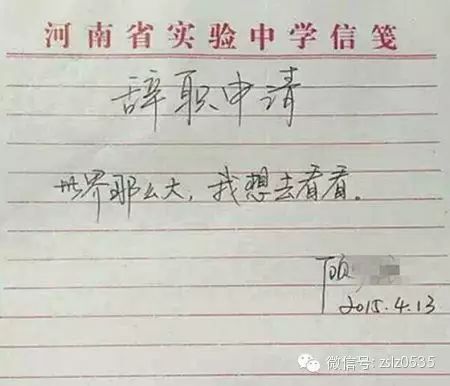 河南省实验中学信笺
辞职申请
世界那么大，我想去看看。
顾
2015.4.13
微信号: zslz0535